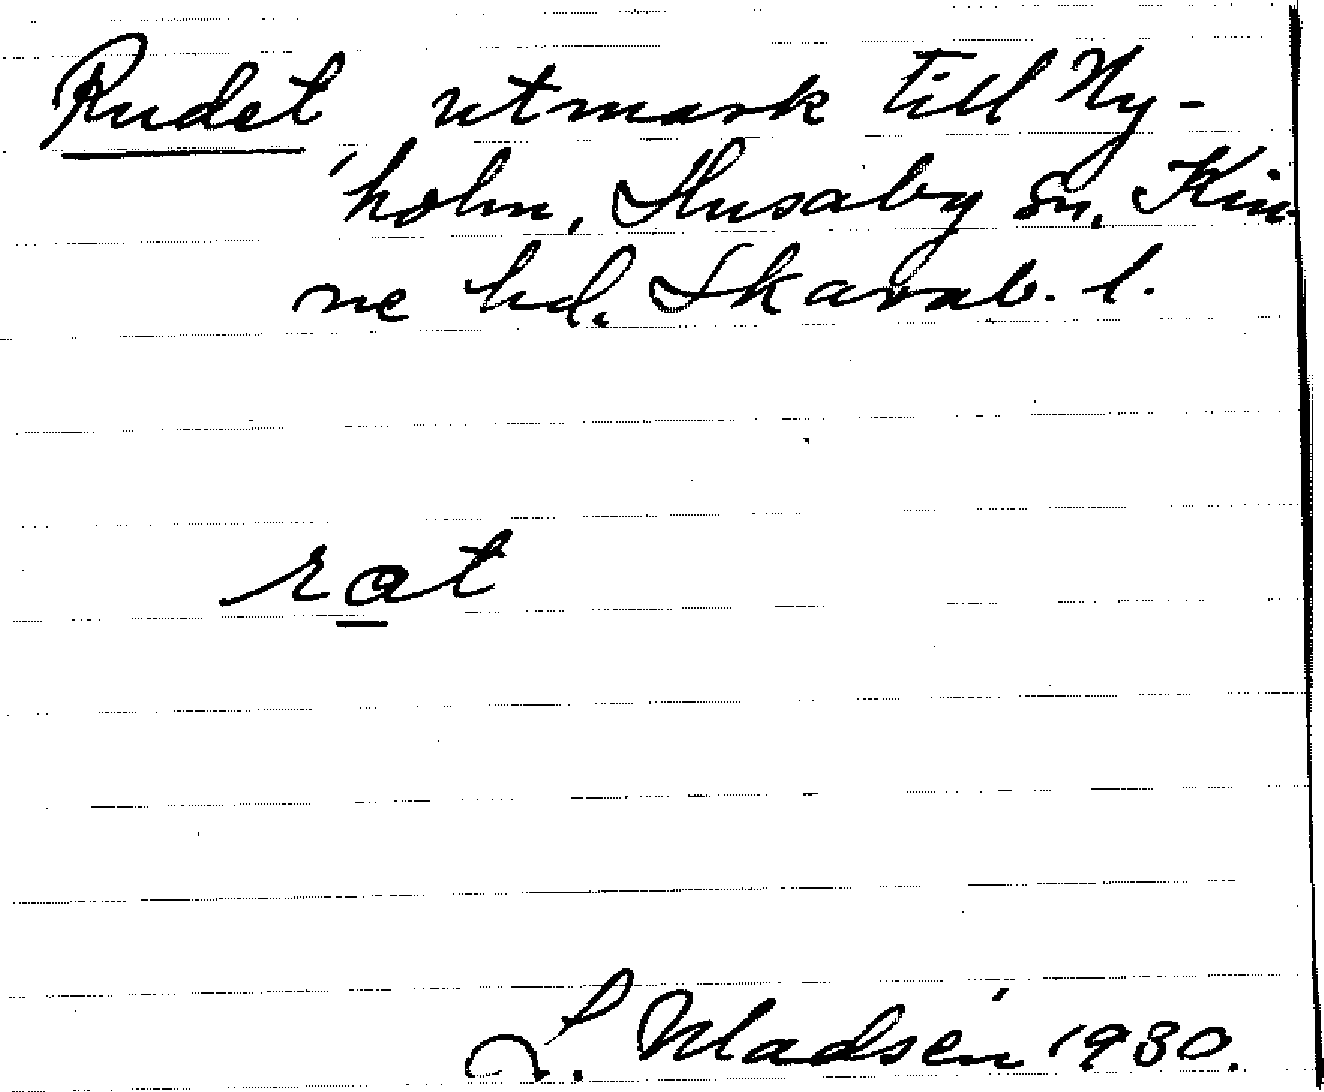 Rudet utmark till Ny-
holm, Husaby sn, Kin-
ne hd. Skarab. l.
rat
L. Madsén 1930.